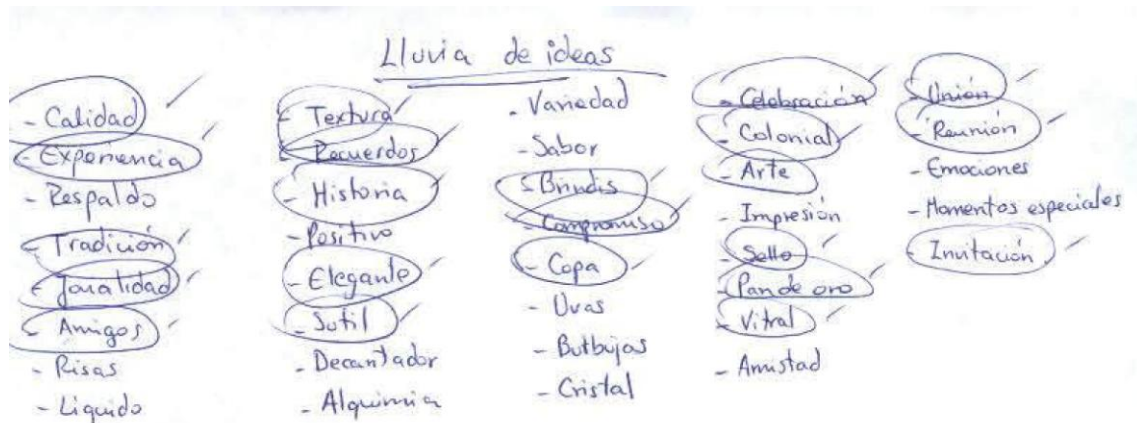 Lluvia de ideas
- Calidad
- Experiencia
- Respaldo
- Tradición
- Jovialidad
- Amigos
- Risas
- Líquido
- Textura
- Recuerdos
- Historia
- Positivo
- Elegante
- Sutil
- Decantador
- Alquimia
- Variedad
- Sabor
- Brindis
- Compromiso
- Copa
- Uvas
- Burbujas
- Cristal
- Celebración
- Colonial
- Arte
- Impresión
- Sello
- Pan de oro
- Vitral
- Amistad
- Unión
- Reunión
- Emociones
- Momentos especiales
- Invitación